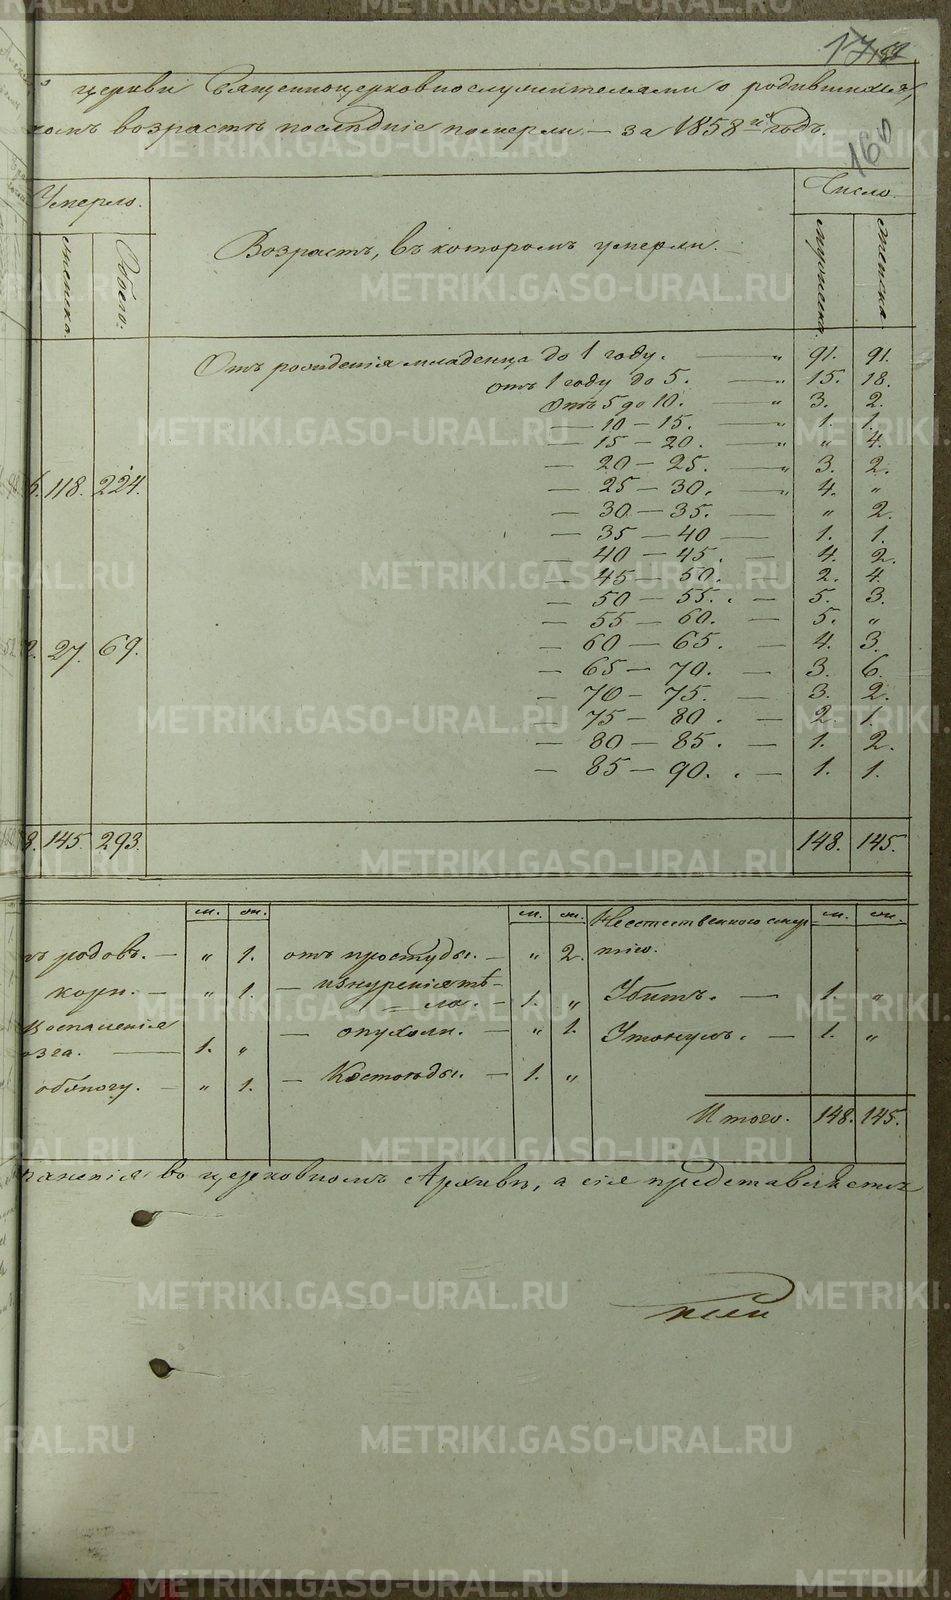 церкви Священноцерковнослужителями о родившихся,
комъ возрастѣ послѣдніе померли – за 1858й годъ.
160
Умерло.
женска.
Обоего.
Возрастъ, въ которомъ умерли.
Число.
мужеска.
женска.
Отъ рожденія младенца до 1 году. — „ 91. 91.
отъ 1 году до 5. — „ 15. 18.
Отъ 5 до 10. — „ 3. 2.
— 10 – 15. — „ 1. 1.
— 15 – 20. — „ „ 4.
— 20 – 25. — „ 3. 2.
118. 224.
— 25 – 30. — „ 4. „
— 30 – 35. — „ 2.
— 35 – 40 — 1. 1.
— 40 – 45. — 4. 2.
— 45 – 50. — 2. 4.
— 50 – 55. — 5. 3.
— 55 – 60. — 5. „
— 60 – 65. — 4. 3.
27. 69.
— 65 – 70. — 3. 6.
— 70 – 75. — 3. 2.
— 75 – 80. — 2. 1.
— 80 – 85. — 1. 2.
— 85 – 90. — 1. 1.
8. 145. 293. 148. 145.
м. ж. м. ж. Неестественною смер м. ж.
тію.
ъ родовъ. — „ 1.
кори. — „ 1.
воспаленія
озга. — 1. „
„ 1.
отъ простуды. — „ 2.
— изнуренія тѣ-
ла. — 1. „
— опухоли. — „ 1.
— Костоѣды. — 1. „
Убитъ. — 1. „
Утонулъ. — 1. „
Итого. 148. 145.
ненія въ церковномъ Архивѣ, а сія представляется
METRIKI.GASO-URAL.RU